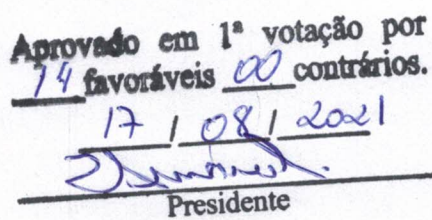 Aprovado em 1ª votação por
14 favoráveis 00 contrários.
17 / 08 / 2021
Presidente